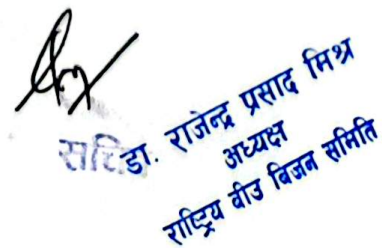 डा. राजेन्द्र प्रसाद मिश्र
अध्यक्ष
राष्ट्रिय बीउ बिजन समिति